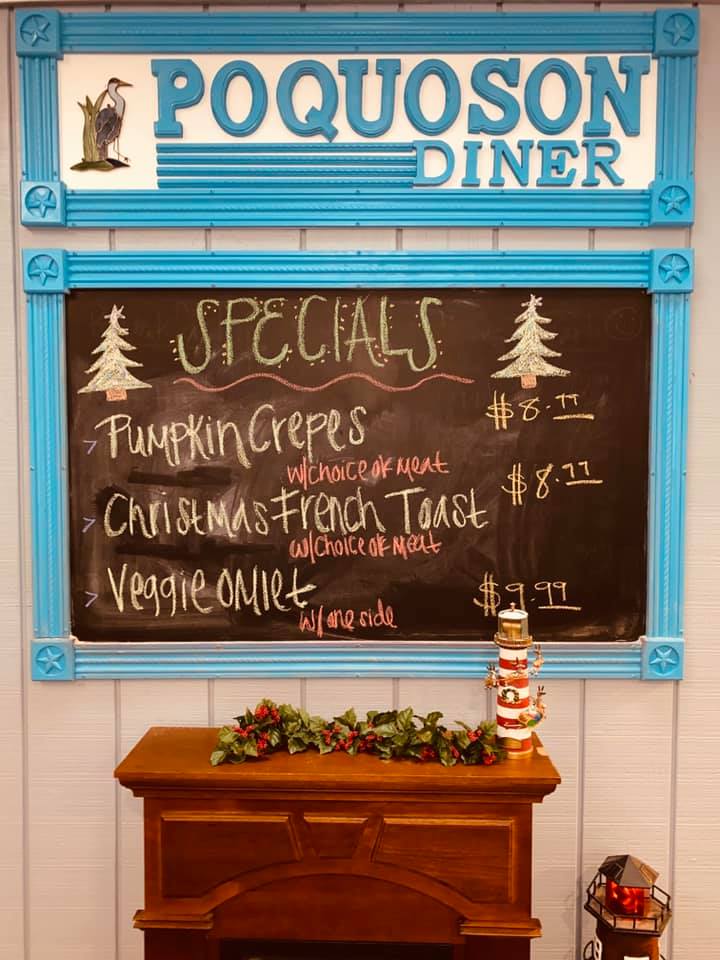 POQUOSON
DINER
SPECIALS
Pumpkin Crepes $8.99
w/choice of Meat
Christmas French Toast $8.99
w/choice of Meat
Veggie OMlet $9.99
w/one side